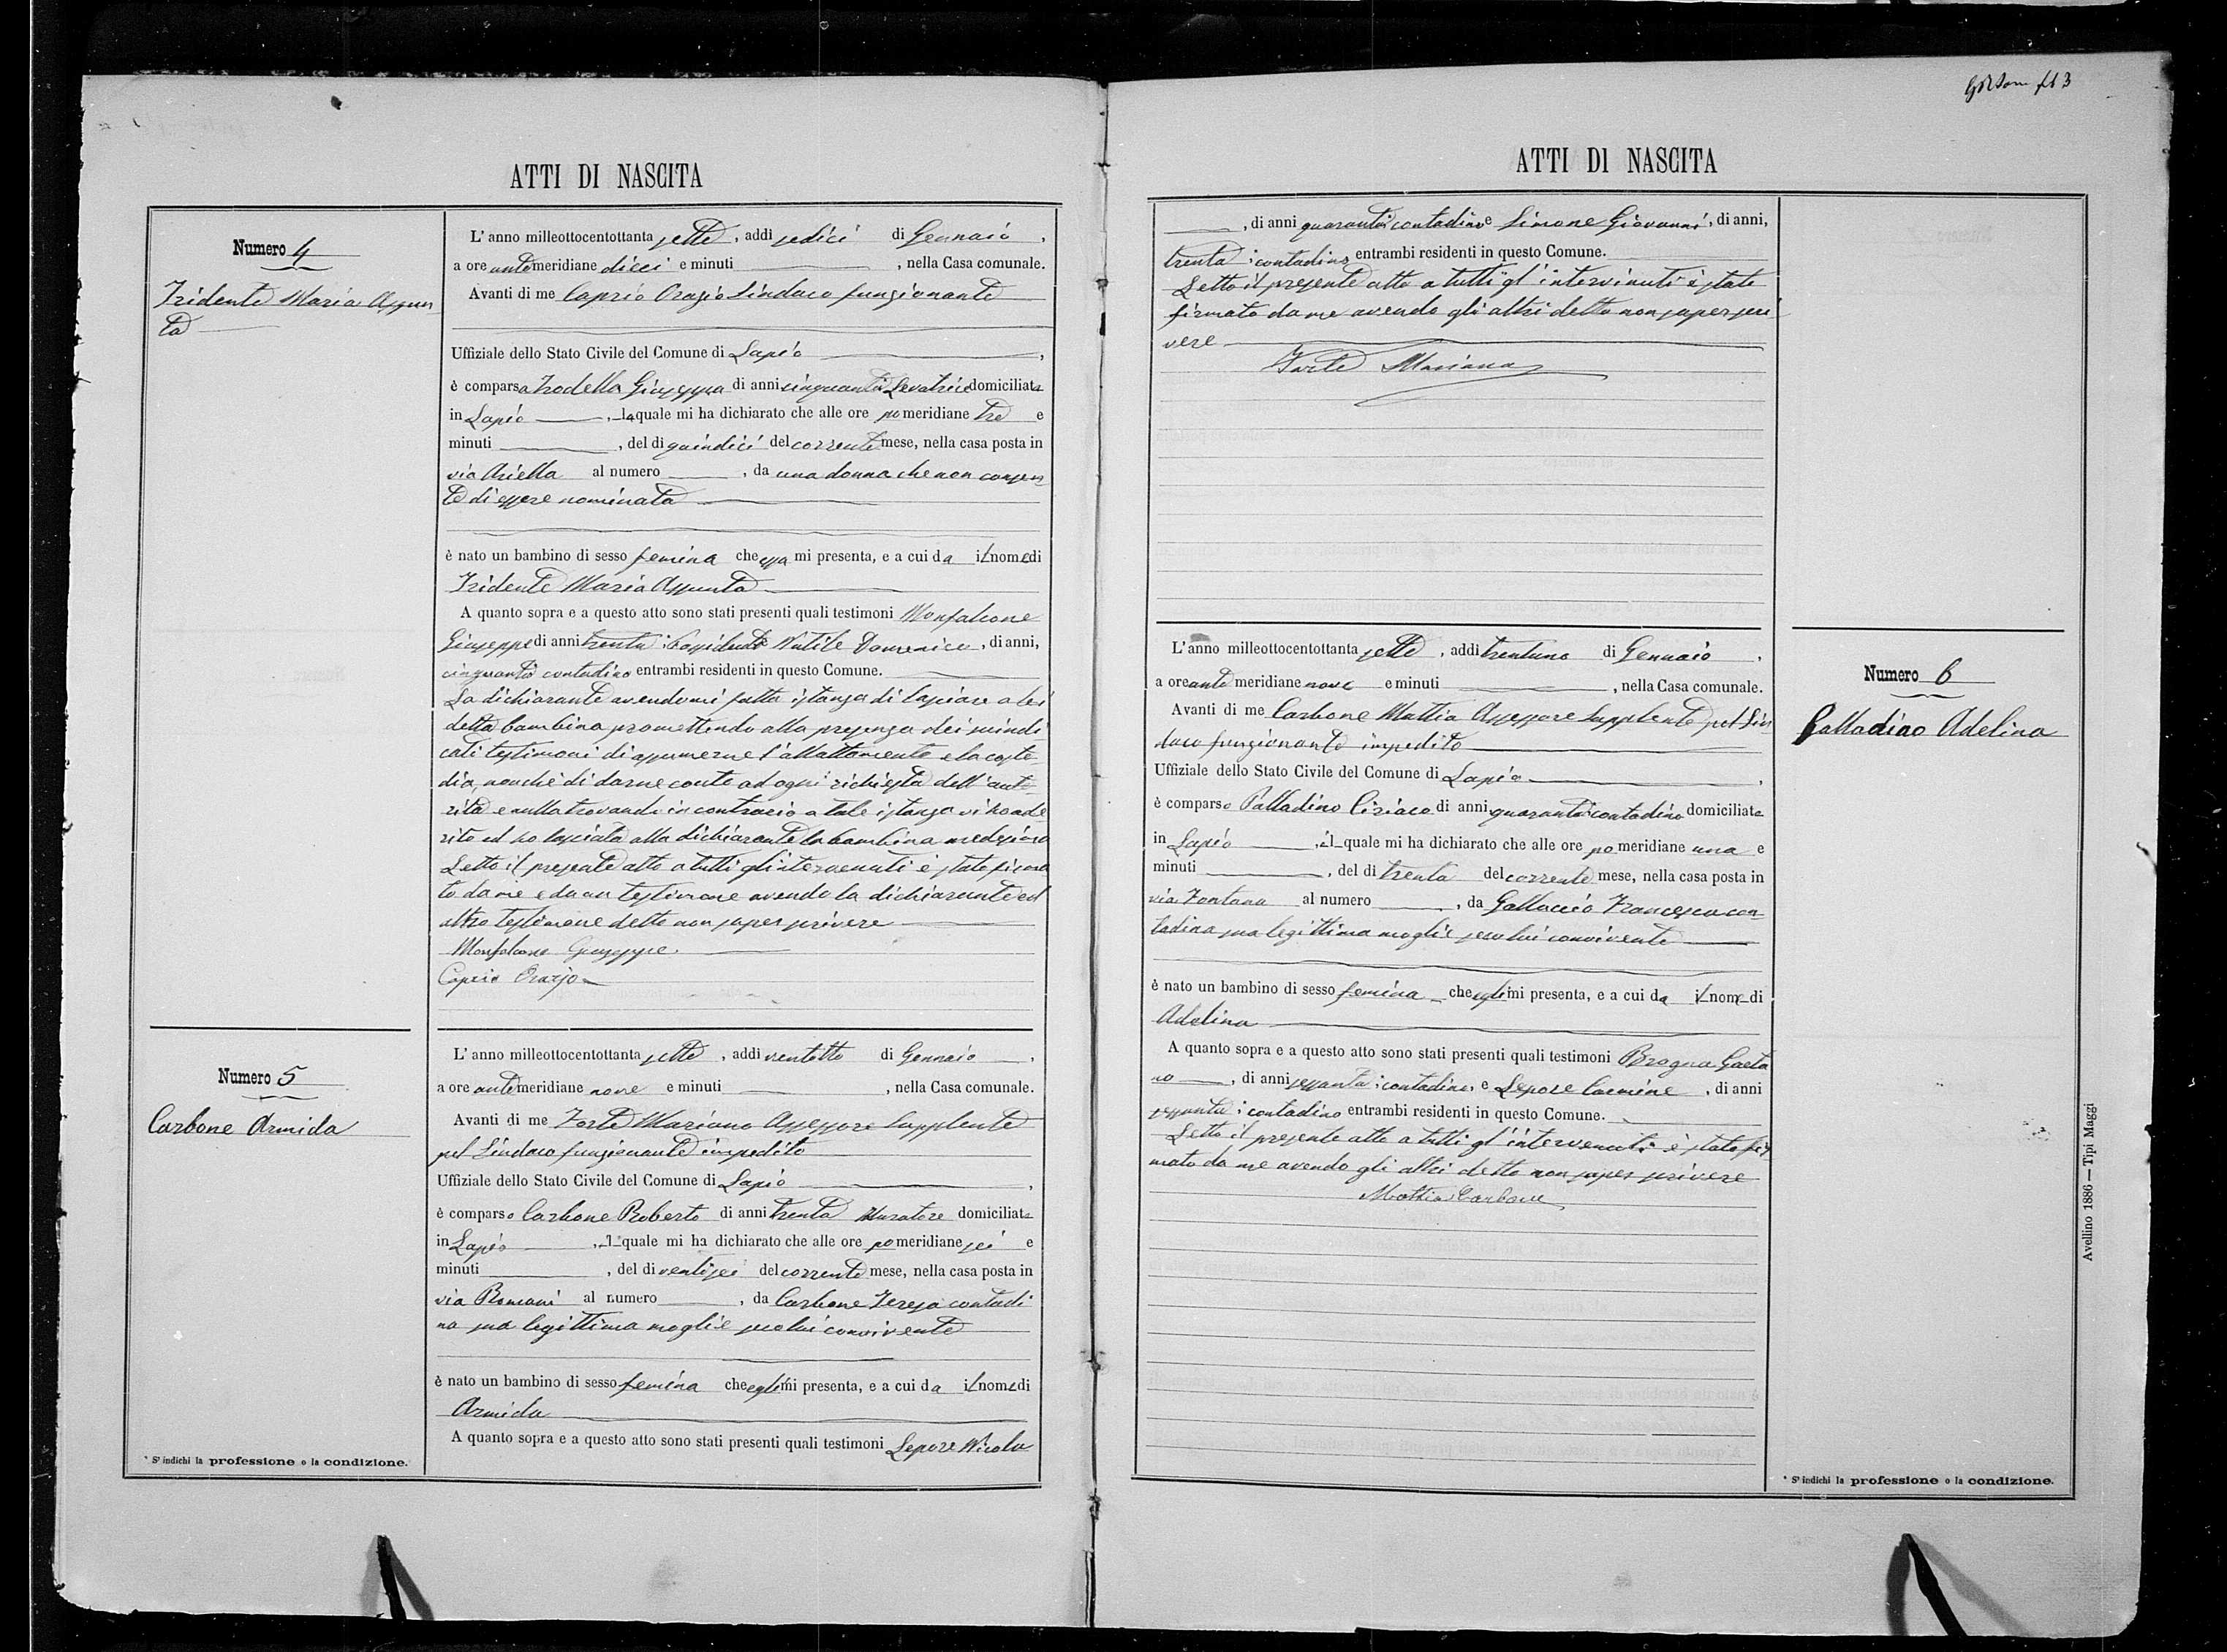 ATTI DI NASCITA
Numero 4
Tridente Maria Assun
ta
L'anno milleottocentottanta sette, addì sedici di Gennaio,
a ore antemeridiane dieci e minuti , nella Casa comunale.
Avanti di me Caprio Orazio Sindaco funzionante
Uffiziale dello Stato Civile del Comune di Lapio,
è comparsa Trodella Giuseppa di anni cinquanta Levatrice domiciliata
in Lapio, la quale mi ha dichiarato che alle ore pomeridiane tre e
minuti , del dì quindici del corrente mese, nella casa posta in
via Ariella al numero , da una donna che non consen
te di essere nominata
è nato un bambino di sesso femina che essa mi presenta, e a cui da il nome di
Tridente Maria Assunta
A quanto sopra e a questo atto sono stati presenti quali testimoni Monfalcone
Giuseppe di anni trenta; Possidente Nutile Domenico, di anni,
cinquanta contadino entrambi residenti in questo Comune.
La dichiarante avendomi fatta istanza di lasciare a lei
detta bambina promettendo alla presenza dei suindi
cati testimoni di assumerne l'allattamento e la custo
dia, nonchè di darne conto ad ogni richiesta dell'auto
rità e nulla trovando in contrario a tale istanza vi ho ade
rito ed ho lasciata alla dichiarante la bambina medesima
Letto il presente atto a tutti gli intervenuti è stato firma
to da me e da un testimone avendo la dichiarante ed
altro testimone detto non saper scrivere
Monfalcone Giuseppe
Caprio Orazio
Numero 5
Carbone Armida
L'anno milleottocentottanta sette, addì ventotto di Gennaio,
a ore antemeridiane nove e minuti , nella Casa comunale.
Avanti di me Forte Mariano Assessore Supplente
pel Sindaco funzionante impedito
Uffiziale dello Stato Civile del Comune di Lapio,
è comparso Carbone Roberto di anni trenta Muratore domiciliato
in Lapio, il quale mi ha dichiarato che alle ore pomeridiane sei e
minuti , del dì ventisei del corrente mese, nella casa posta in
via Romani al numero , da Carbone Teresa contadi
na sua legittima moglie seco lui convivente
è nato un bambino di sesso femina che egli mi presenta, e a cui da il nome di
Armida
A quanto sopra e a questo atto sono stati presenti quali testimoni Lepore Nicola
* S'indichi la professione o la condizione.
ATTI DI NASCITA
, di anni quaranta; contadino e Simone Giovanni, di anni,
trenta; contadino entrambi residenti in questo Comune.
Letto il presente atto a tutti gl'intervenuti è stato
firmato da me avendo gli altri detto non saper scri
vere
Forte Mariano
Numero 6
Palladino Adelina
L'anno milleottocentottanta sette, addì trentuno di Gennaio,
a ore antemeridiane nove e minuti , nella Casa comunale.
Avanti di me Carbone Mattia Assessore Supplente pel Sin
daco funzionante impedito
Uffiziale dello Stato Civile del Comune di Lapio,
è comparso Palladino Ciriaco di anni quaranta; contadino domiciliato
in Lapio, il quale mi ha dichiarato che alle ore pomeridiane una e
minuti , del dì trenta del corrente mese, nella casa posta in
via Fontana al numero , da Galluccio Francesca con
tadina sua legittima moglie seco lui convivente
è nato un bambino di sesso femina che egli mi presenta, e a cui da il nome di
Adelina
A quanto sopra e a questo atto sono stati presenti quali testimoni Brogna Gaeta
no, di anni sessanta; contadino, e Lepore Carmine, di anni
sessanta; contadino entrambi residenti in questo Comune.
Letto il presente atto a tutti gl'intervenuti è stato fir
mato da me avendo gli altri detto non saper scrivere
Mattia Carbone
* S'indichi la professione o la condizione.
Avellino 1886 — Tipi Maggi